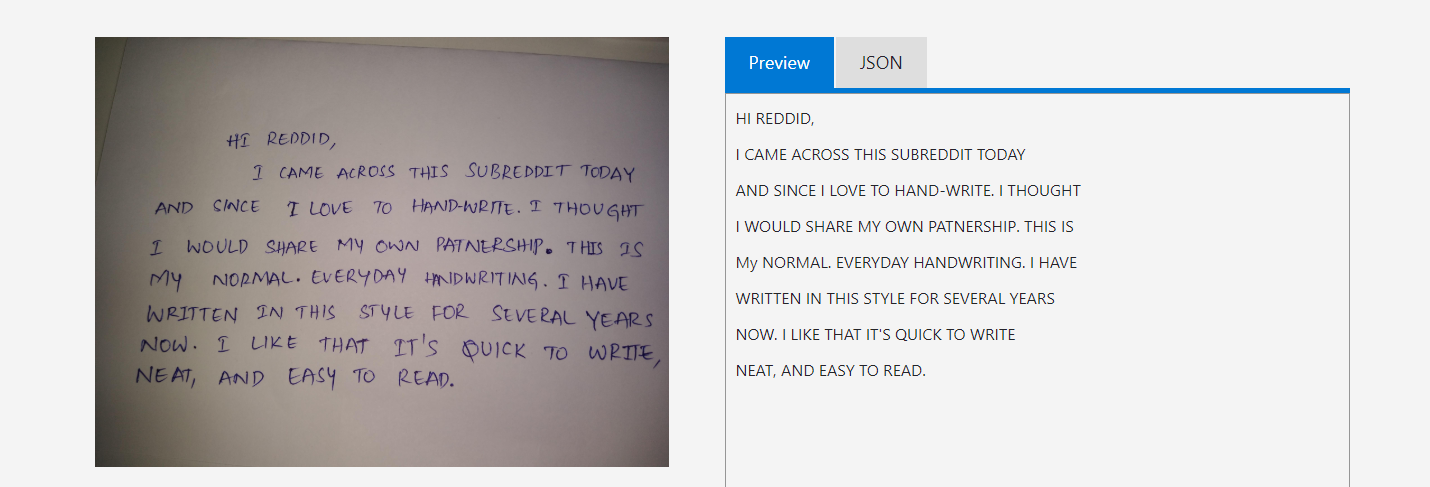 HI REDDID,
I CAME ACROSS THIS SUBREDDIT TODAY
AND SINCE I LOVE TO HAND-WRITE. I THOUGHT
I WOULD SHARE MY OWN PATNERSHIP. THIS IS
MY NORMAL. EVERYDAY HANDWRITING. I HAVE
WRITTEN IN THIS STYLE FOR SEVERAL YEARS
NOW. I LIKE THAT IT'S QUICK TO WRITE,
NEAT, AND EASY TO READ.
Preview JSON
HI REDDID,
I CAME ACROSS THIS SUBREDDIT TODAY
AND SINCE I LOVE TO HAND-WRITE. I THOUGHT
I WOULD SHARE MY OWN PATNERSHIP. THIS IS
My NORMAL. EVERYDAY HANDWRITING. I HAVE
WRITTEN IN THIS STYLE FOR SEVERAL YEARS
NOW. I LIKE THAT IT'S QUICK TO WRITE
NEAT, AND EASY TO READ.